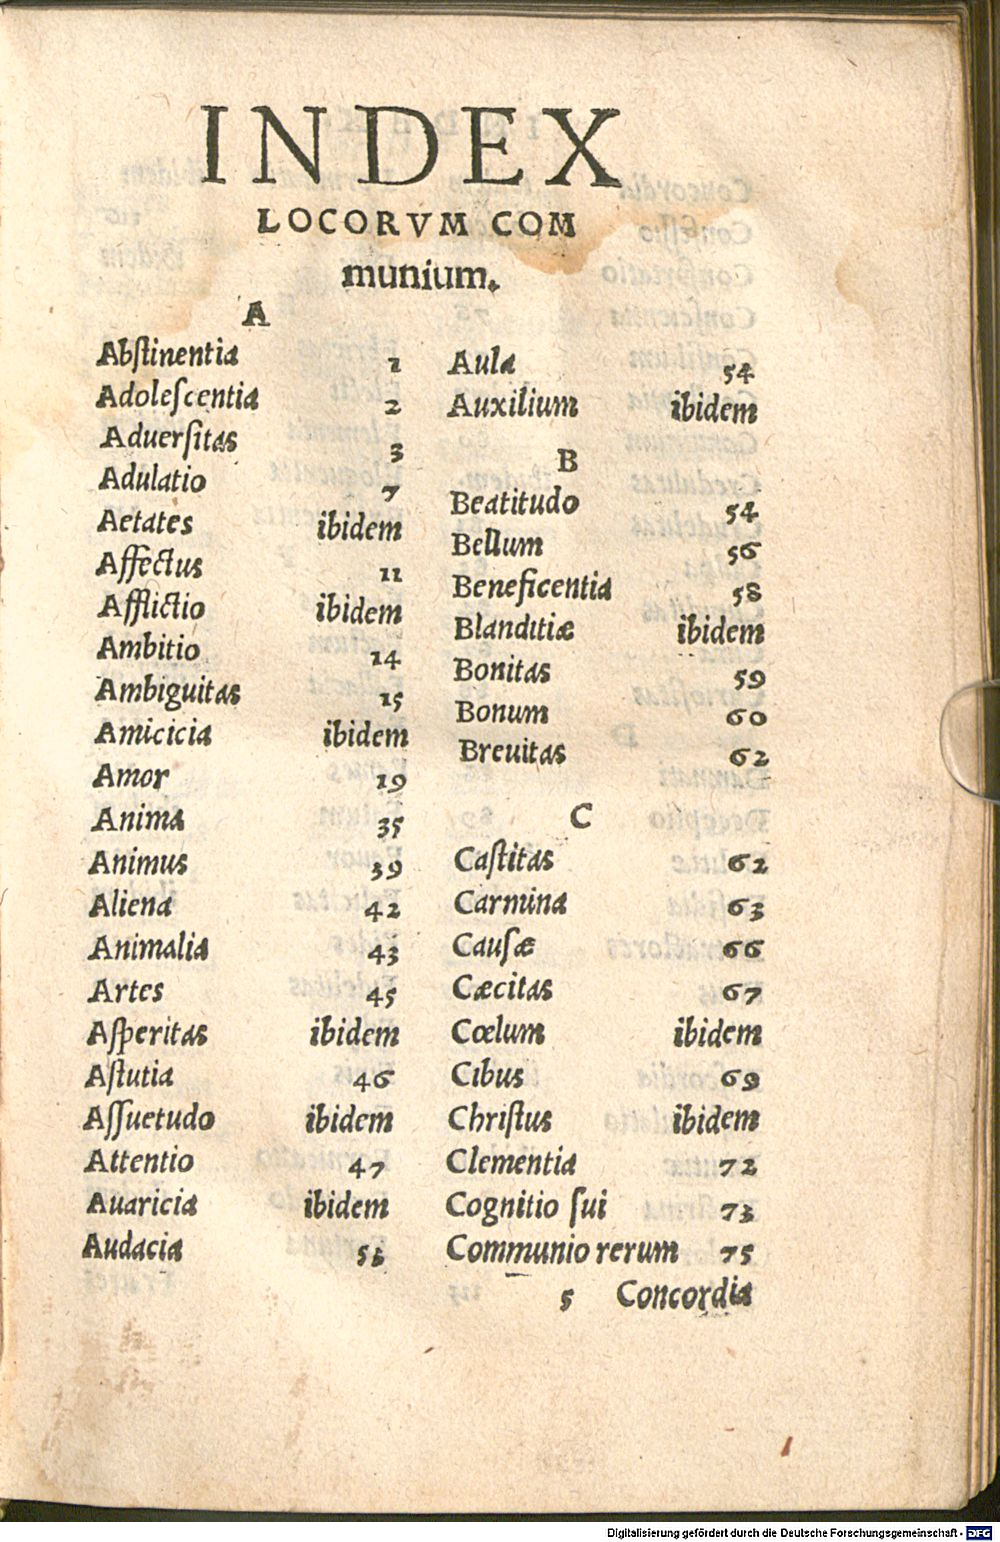 INDEX
LOCORVM COM
munium.
A
Abſtinentia 1
Adoleſcentia 2
Aduerſitas 3
Adulatio 7
Aetates ibidem
Affectus 11
Afflictio ibidem
Ambitio 14
Ambiguitas 15
Amicicia ibidem
Amor 19
Anima 35
Animus 39
Aliena 42
Animalia 43
Artes 45
Aſperitas ibidem
Aſtutia 46
Aſſuetudo ibidem
Attentio 47
Auaricia ibidem
Audacia
Aula 54
Auxilium ibidem
B
Beatitudo 54
Bellum 56
Beneficentia 58
Blanditiæ ibidem
Bonitas 59
Bonum 60
Breuitas 62
C
Caſtitas 62
Carmina 63
Cauſæ 66
Cæcitas 67
Cœlum ibidem
Cibus 69
Chriſtus ibidem
Clementia 72
Cognitio ſui 73
Communio rerum 75
5 Concordia
Digitalisierung gefördert durch die Deutsche Forschungsgemeinschaft - DFG